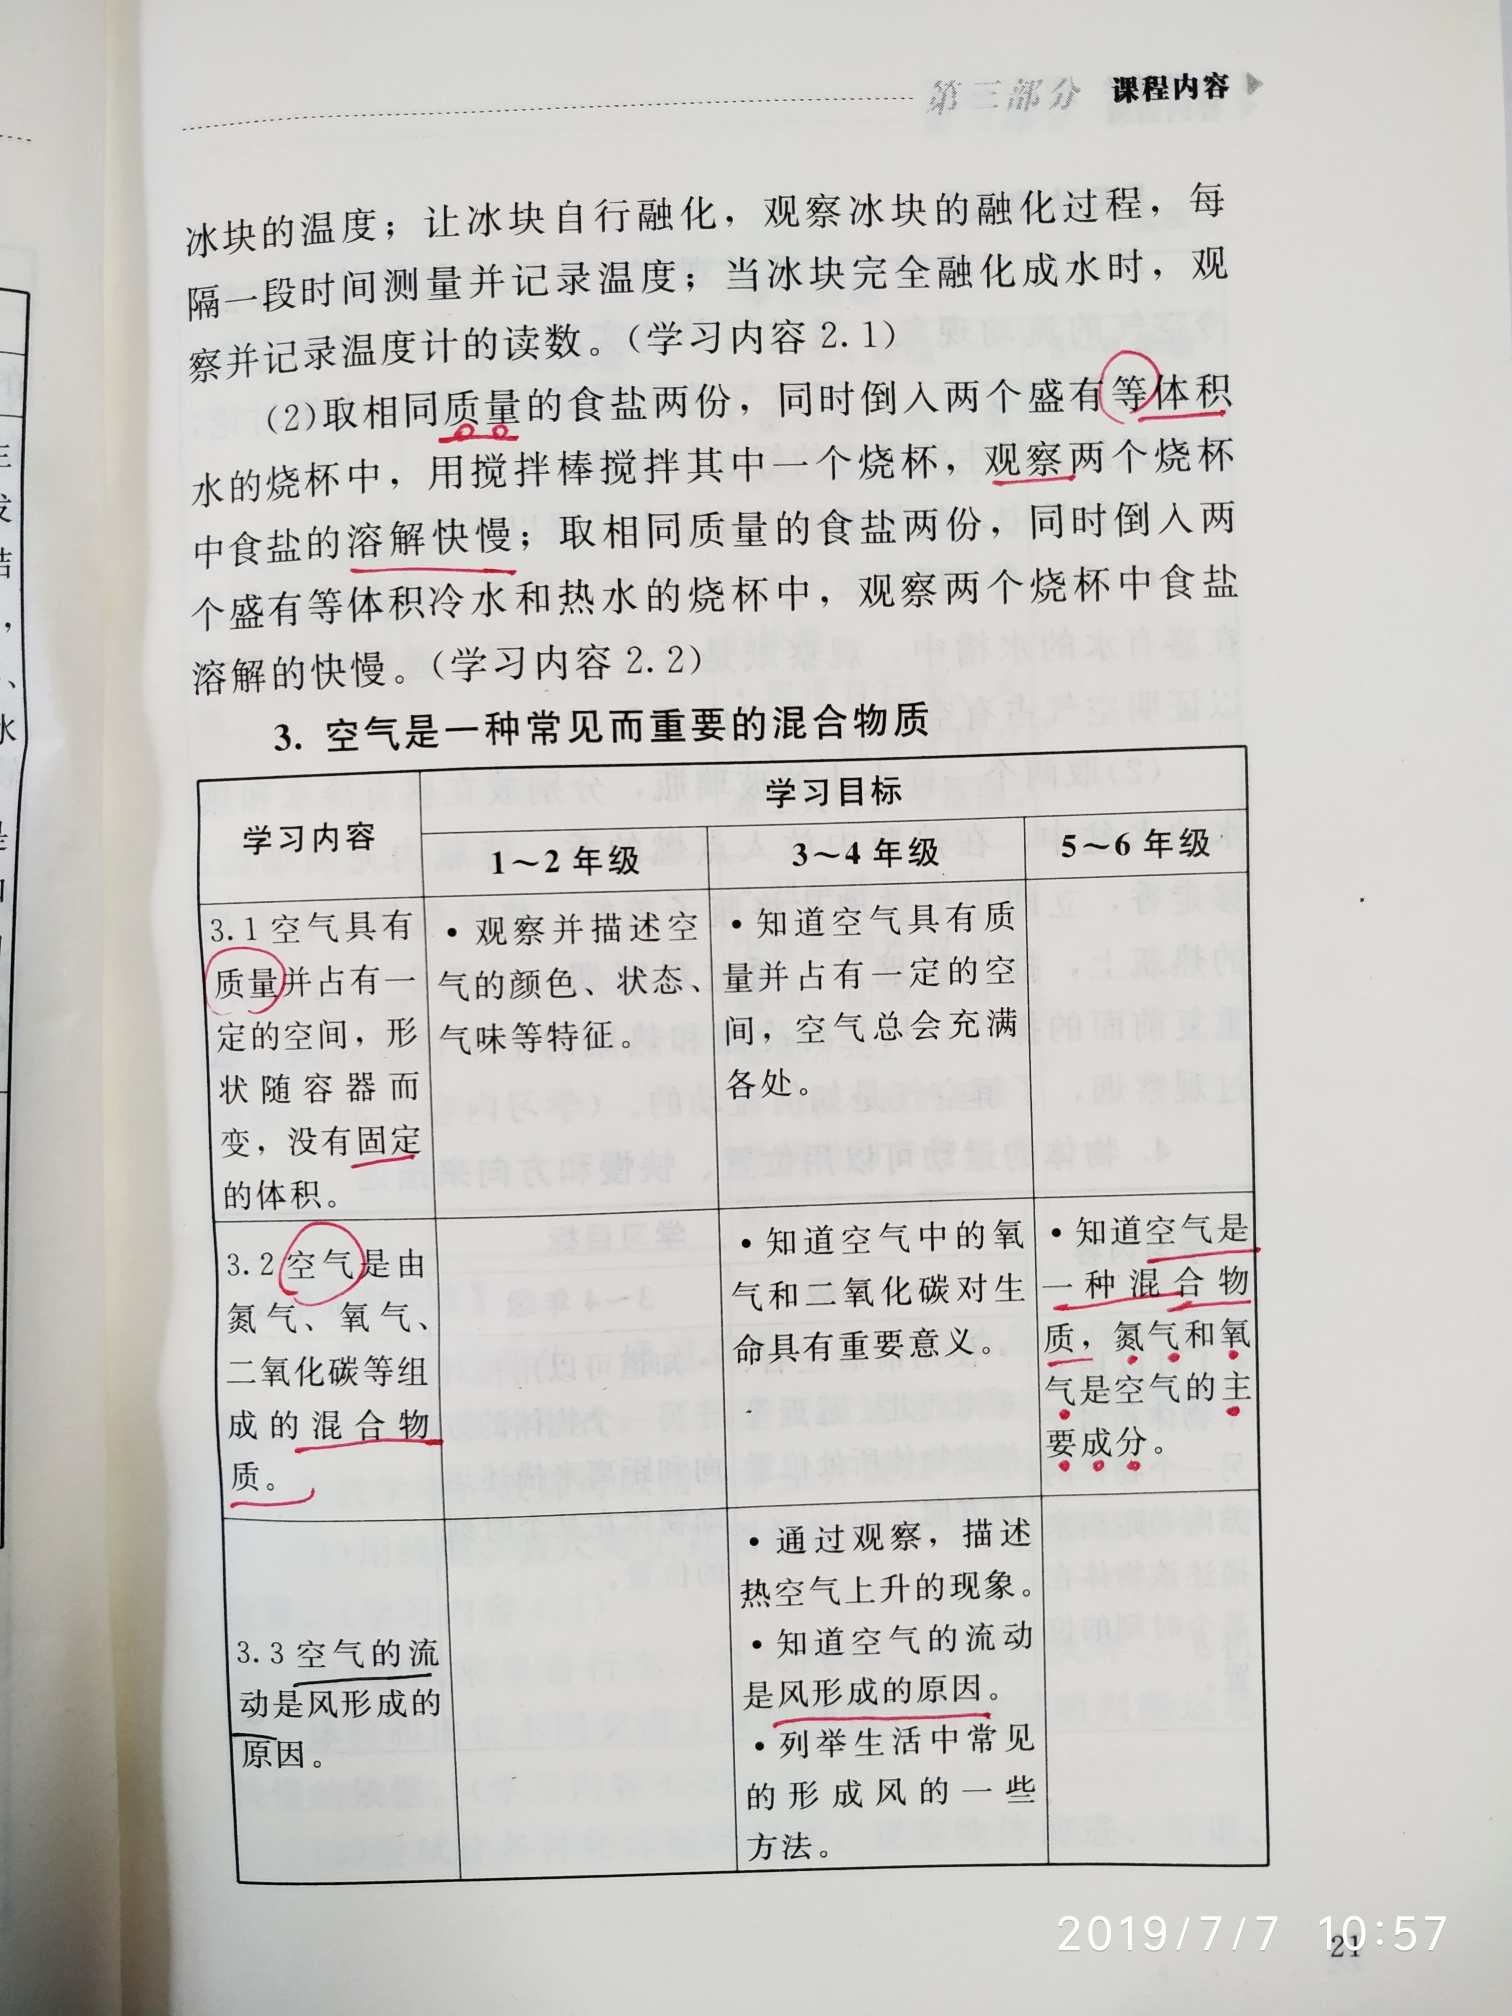 第三部分 课程内容
冰块的温度；让冰块自行融化，观察冰块的融化过程，每
隔一段时间测量并记录温度；当冰块完全融化成水时，观
察并记录温度计的读数。(学习内容2.1)
(2)取相同质量的食盐两份，同时倒入两个盛有等体积
水的烧杯中，用搅拌棒搅拌其中一个烧杯，观察两个烧杯
中食盐的溶解快慢；取相同质量的食盐两份，同时倒入两
个盛有等体积冷水和热水的烧杯中，观察两个烧杯中食盐
溶解的快慢。(学习内容2.2)
3. 空气是一种常见而重要的混合物质
学习内容
学习目标
1～2年级
3～4年级
5～6年级
3.1空气具有
质量并占有一
定的空间，形
状随容器而
变，没有固定
的体积。
·观察并描述空
气的颜色、状态、
气味等特征。
·知道空气具有质
量并占有一定的空
间，空气总会充满
各处。
3.2空气是由
氮气、氧气、
二氧化碳等组
成的混合物
质。
·知道空气中的氧
气和二氧化碳对生
命具有重要意义。
·知道空气是
一种混合物
质，氮气和氧
气是空气的主
要成分。
3.3空气的流
动是风形成的
原因。
·通过观察，描述
热空气上升的现象。
·知道空气的流动
是风形成的原因。
·列举生活中常见
的形成风的一些
方法。
2019/7/7 10:57
21